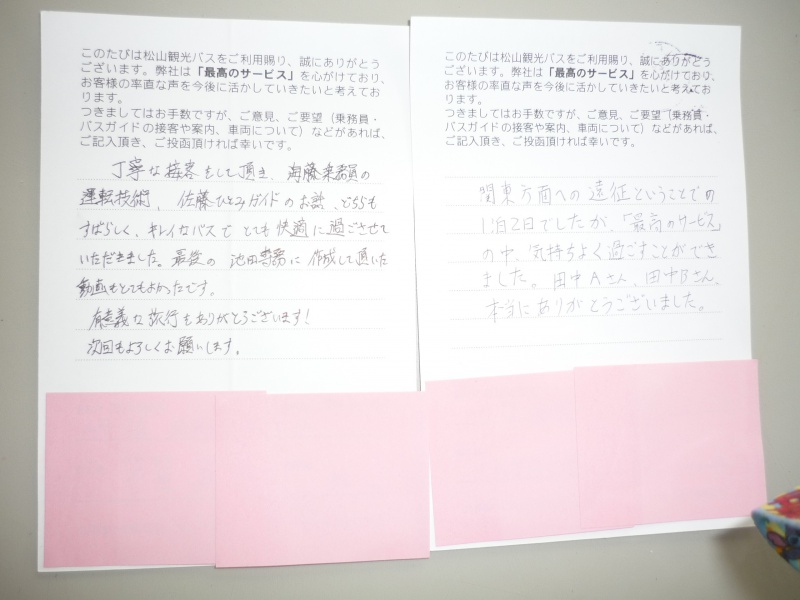 このたびは松山観光バスをご利用賜り、誠にありがとう
ございます。弊社は「最高のサービス」を心がけており、
お客様の率直な声を今後に活かしていきたいと考えてお
ります。
つきましてはお手数ですが、ご意見、ご要望（乗務員・
バスガイドの接客や案内、車両について）などがあれば、
ご記入頂き、ご投函頂ければ幸いです。
丁寧な接客をして頂き、海藤乗務員の
運転技術、佐藤ひとみガイドのお話、どちらも
すばらしく、キレイなバスでとても快適に過ごさせて
いただきました。最後の池田専務に作成して頂いた
動画もとてもよかったです。
有意義な旅行をありがとうございます！
次回もよろしくお願いします。
このたびは松山観光バスをご利用賜り、誠にありがとう
ございます。弊社は「最高のサービス」を心がけており、
お客様の率直な声を今後に活かしていきたいと考えてお
ります。
つきましてはお手数ですが、ご意見、ご要望（乗務員・
バスガイドの接客や案内、車両について）などがあれば、
ご記入頂き、ご投函頂ければ幸いです。
関東方面への遠征ということでの
1泊2日でしたが、「最高のサービス」
の中、気持ちよく過ごすことができ
ました。田中Aさん、田中Bさん、
本当にありがとうございました。